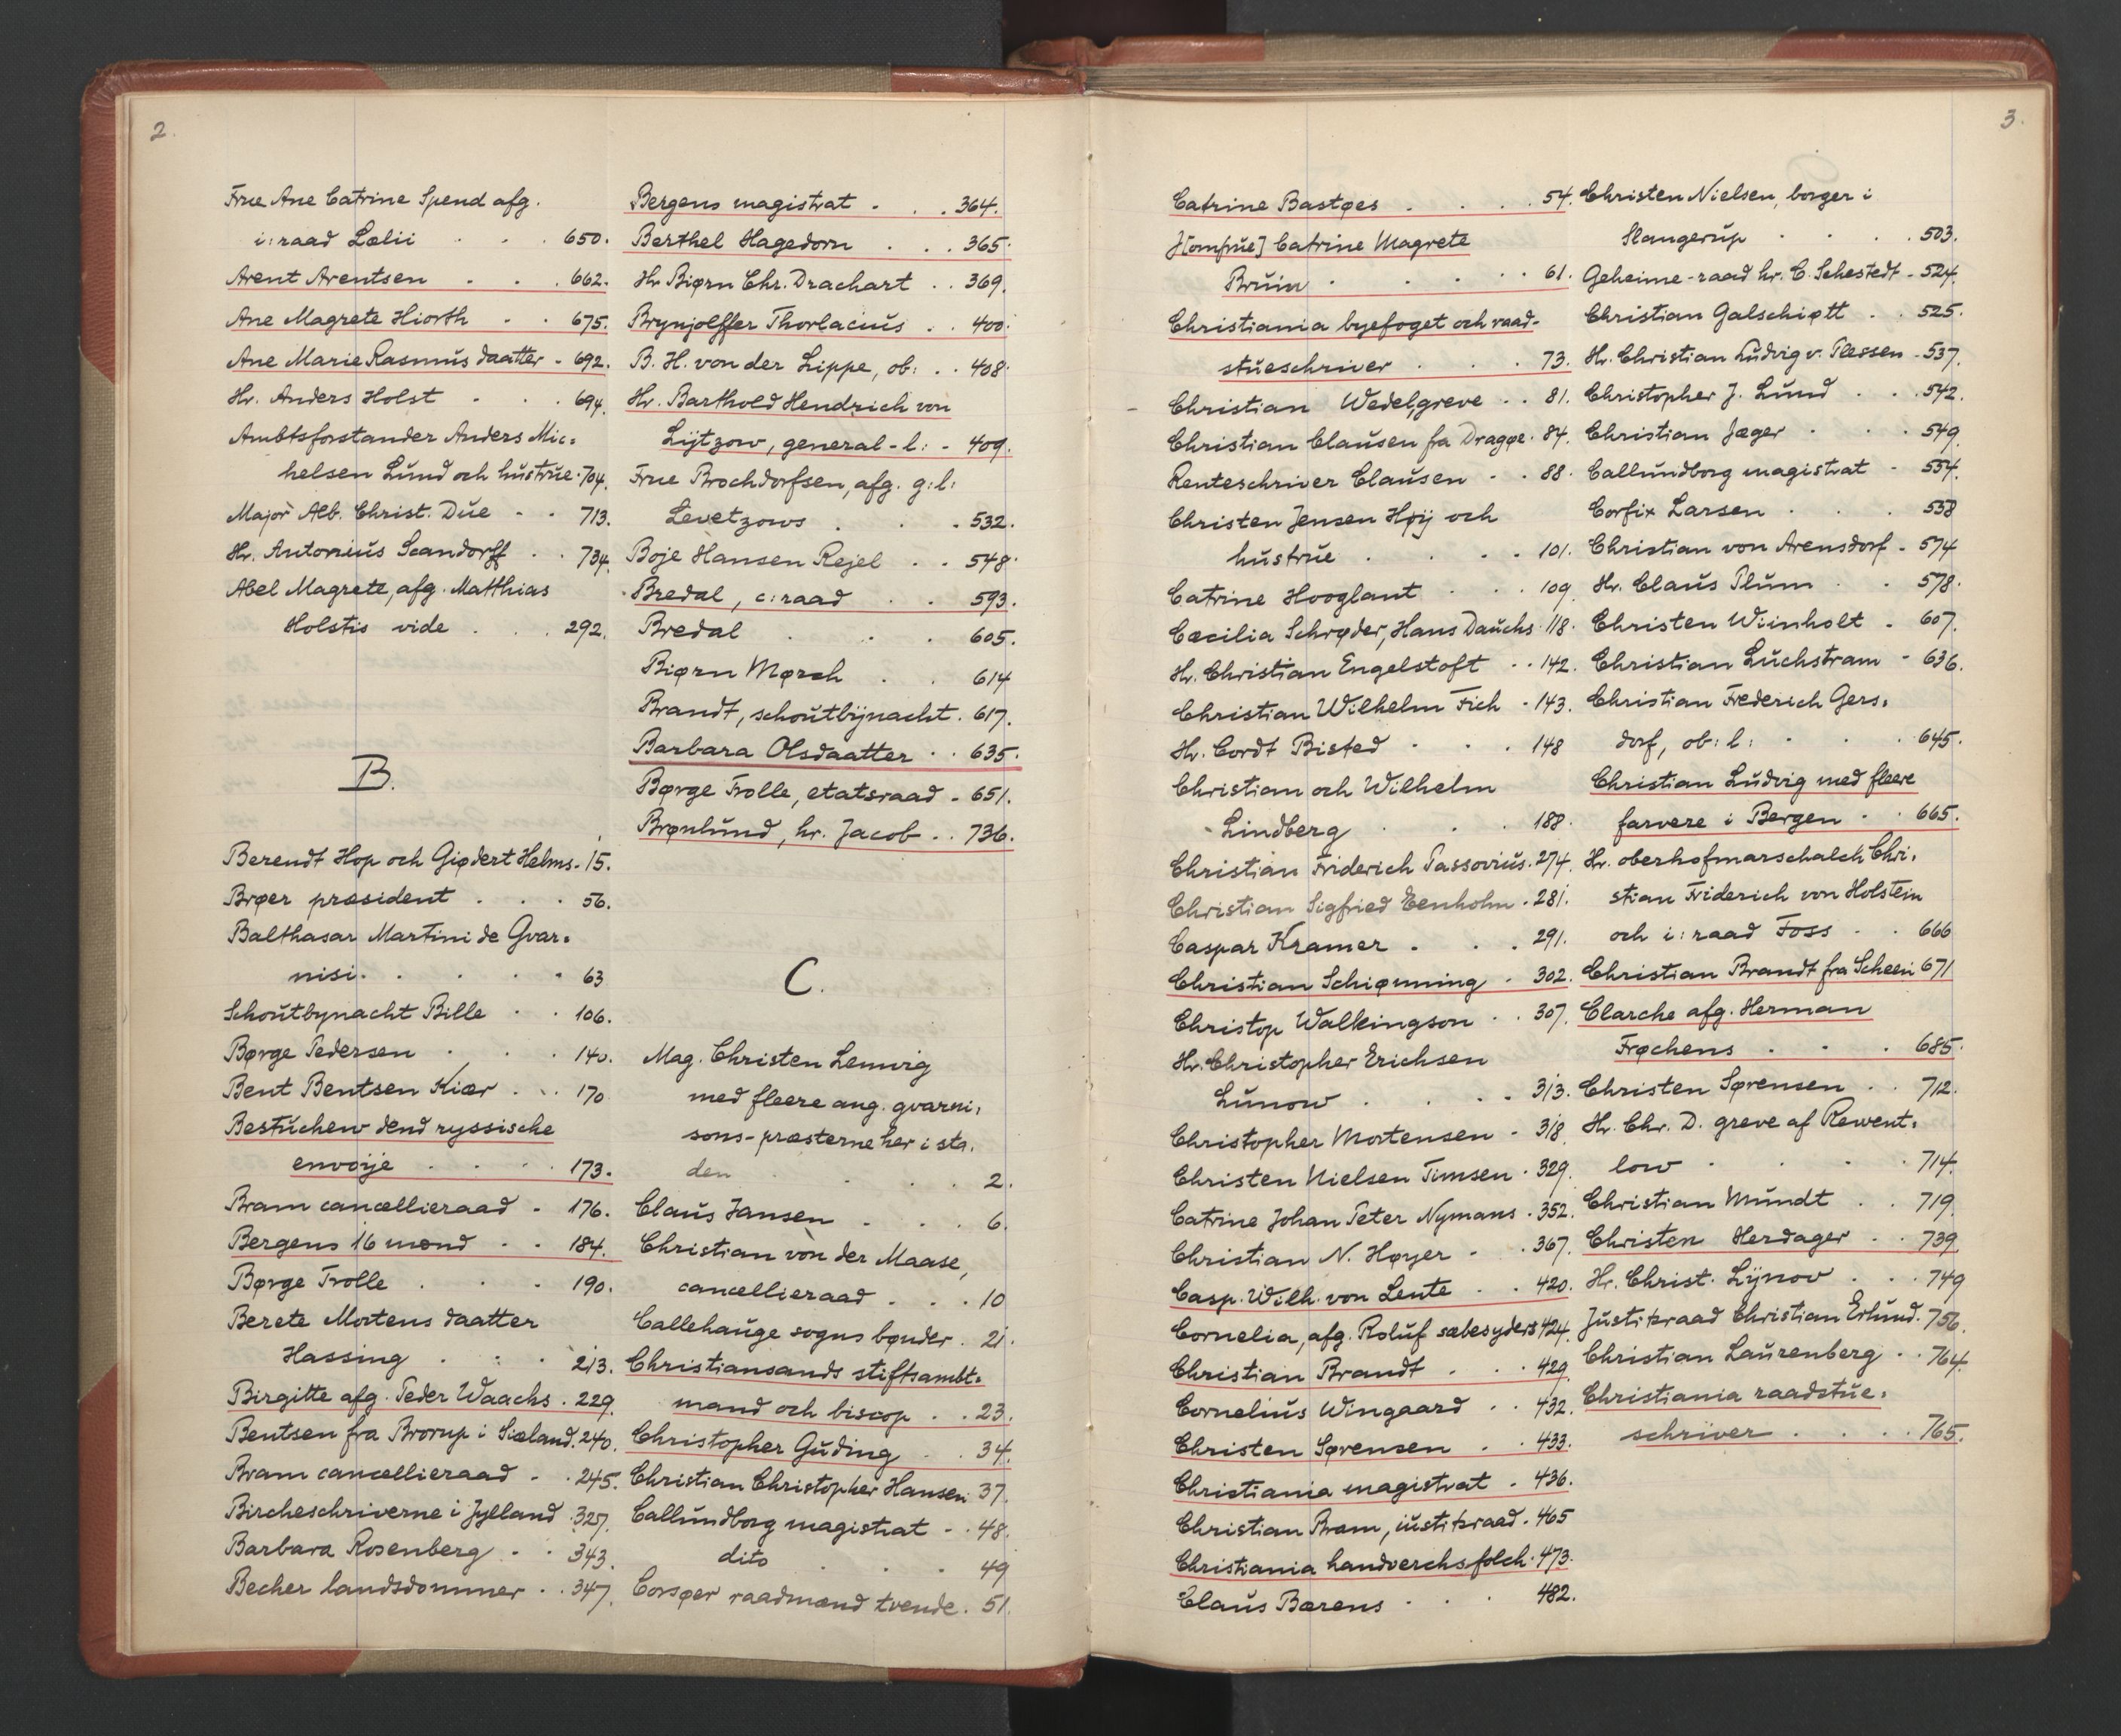 2.
Frue Ane Catrine Spend afg.
i: raad Lælii . . . 650.
Arent Arentsen . . . 662.
Ane Magrete Hiorth . . 675.
Ane Marie Rasmus daatter - 692.
Hr. Anders Holst . . . 694.
Ambtsforstander Anders Mic=
helsen Lund och hustrue . 704.
Major Alb. Christ. Due . . 713.
Hr. Antonius Scandorff . . 734.
Abel Magrete, afg. Matthias
Holstis vide . . . 292.
B.
Berendt Hop och Giødert Helms . 15.
Brøer præsident . . . 56.
Balthasar Martini de Gvar=
nisi . . . . . 63
Schoutbynacht Bille . . 106.
Børge Pedersen . . . 140.
Bent Bentsen Kiær . . . 170
Bestuchew dend ryssische
envoije . . . . 173.
Bram cancellieraad . 176.
Bergens 16 mænd . . 184.
Børge Trolle . . . 190.
Berete Mortens daatter
Hassing . . . 213.
Birgitte afg. Peder Waachs . 229.
Bentsen fra Brorup i Siæland . 240.
Bram cancellieraad . . 245.
Bircheschriverne i Jylland . 327.
Barbara Rosenberg . . 343.
Becher landsdommer . . 347.
Bergens magistrat . . . 364.
Berthel Hagedorn . . . 365.
Hr. Biørn Chr. Drachart . . 369.
Brynjolffer Thorlacius . . 400.
B. H. von der Lippe, ob: . . 408.
Hr. Barthold Hendrich von
Lÿtzow, general-l: - 409.
Frue Brochdorfsen, afg. g: l:
Levetzows . . . 532.
Boje Hansen Rejel . . 548.
Bredal, c: raad . . 593.
Bredal . . . 605.
Biørn Mørch . . 614
Brandt, schoutbijnacht . 617.
Barbara Olsdaatter . . 635.
Børge Trolle, etatsraad . 651.
Brønlund, hr. Jacob . . 736.
C.
Mag. Christen Lemvig
med fleere ang. gvarni=
sons-præsterne her i sta=
den . . . . 2.
Claus Jansen . . . 6.
Christian von der Maase,
cancellieraad . . . 10
Callehauge sogns bønder . 21.
Christiansands stiftsambt=
mand och biscop . . 23.
Christopher Guding . . 34.
Christian Christopher Hansen 37.
Callundborg magistrat . . 48.
dito . . . 49
Corsøer raadmænd tvende . 51.
3.
Catrine Bastøes . . . . 54.
J[omfrue] Catrine Magrete
Bruin . . . . . 61.
Christiania byefoget och raad-
stueschriver . . . 73.
Christian Wedel, greve . . 81.
Christian Clausen fra Dragøe . 84.
Renteschriver Clausen . . 88.
Christen Jensen Høÿ och
hustrue . . . . 101.
Catrine Hooglant . . . 109.
Cæcilia Schrøder, Hans Dauchs . 118.
Hr. Christian Engelstoft . . 142.
Christian Wilhelm Fich . 143.
Hr. Cordt Bisted . . . 148
Christian och Wilhelm
Lindberg . . . 188.
Christian Friderich Passovius . 274.
Christian Sigfried Eenholm . 281.
Caspar Kramer . . . 291.
Christian Schiønning . 302.
Christop Walkingson . . 307.
Hr. Christopher Erichsen
Lunow . . . . 313.
Christopher Mortensen . 318.
Christen Nielsen Timsen . 329.
Catrine Johan Peter Nymans . 352.
Christian N. Høyer . . 367.
Casp. Wilh. von Lente . . 420.
Cornelia, afg. Roluf sæbesyders 424.
Christian Brandt . . . 429.
Cornelius Wingaard . . 432.
Christen Sørensen . . 433.
Christiania magistrat . 436.
Christian Bram, iustitsraad . 465
Christiania handverchsfolch . 473.
Claus Bærens . . . 482.
Christen Nielsen, borger i
Slangerup . . . . 503.
Geheime-raad hr. C. Sehestedt - 524.
Christian Galschiøtt . . 525.
Hr. Christian Ludvig v. Plessen - 537.
Christopher J. Lund . . . 542.
Christian Jæger . . . 549.
Callundborg magistrat - 554.
Corfix Larsen . . . 558
Christian von Arensdorf - 574
Hr. Claus Plum . . 578.
Christen Wiinholt . 607.
Christian Luchstram - 636.
Christian Frederich Gers=
dorf, ob: l: . . . 645.
Christian Ludvig med fleere
farvere i Bergen . . 665.
Hr. oberhofmarschalch Chri=
stian Friderich von Holstein
och i: raad Foss . . 666
Christian Brandt fra Scheen 671
Clarche afg. Herman
Frøchens . . . 685.
Christen Sørensen . . 712.
Hr. Chr. D. greve af Rewent=
low . . . . 714.
Christian Mundt . . 719.
Christen Herdager . . 739.
Hr. Christ. Lÿnov . . . 749
Justitsraad Christian Erlund . 756.
Christian Laurenberg . . 764.
Christiania raadstue=
schriver . . . . 765.